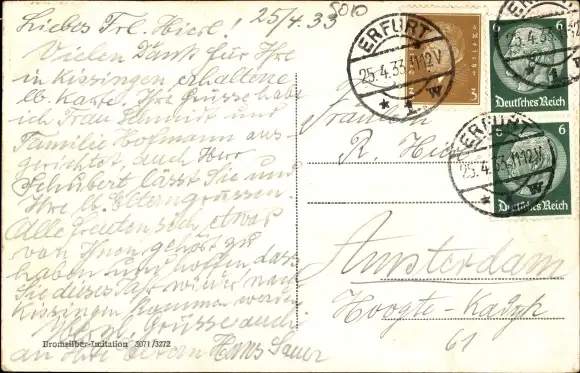 Liebes Frl. Hierl! 25/4.33
5010
Vielen Dank für Ihre
in Kissingen erhaltene
lb. Karte. Ihre Grüsse habe
ich Frau und
Familie Hofmann aus-
gerichtet, auch Herr
Schubert lässt Sie und
Ihre lb. Eltern grüssen.
Alle freuten sich, etwas
von Ihnen gehört zu
haben und hoffen, dass
Sie dieses Jahr wieder nach
Kissingen kommen werden.
Herzl. Grüsse auch
an Ihre Eltern Hans
Bromsilber-Imitation 5071/3272
ERFURT
25.4.33.11-12V
* 1 w
3 3
6 6
Deutsches Reich
ERFURT
25.4.33.11-12V
w
6 6
Deutsches Reich
Fräulein
R.
Amsterdam
Hoogte-Kadijk
61